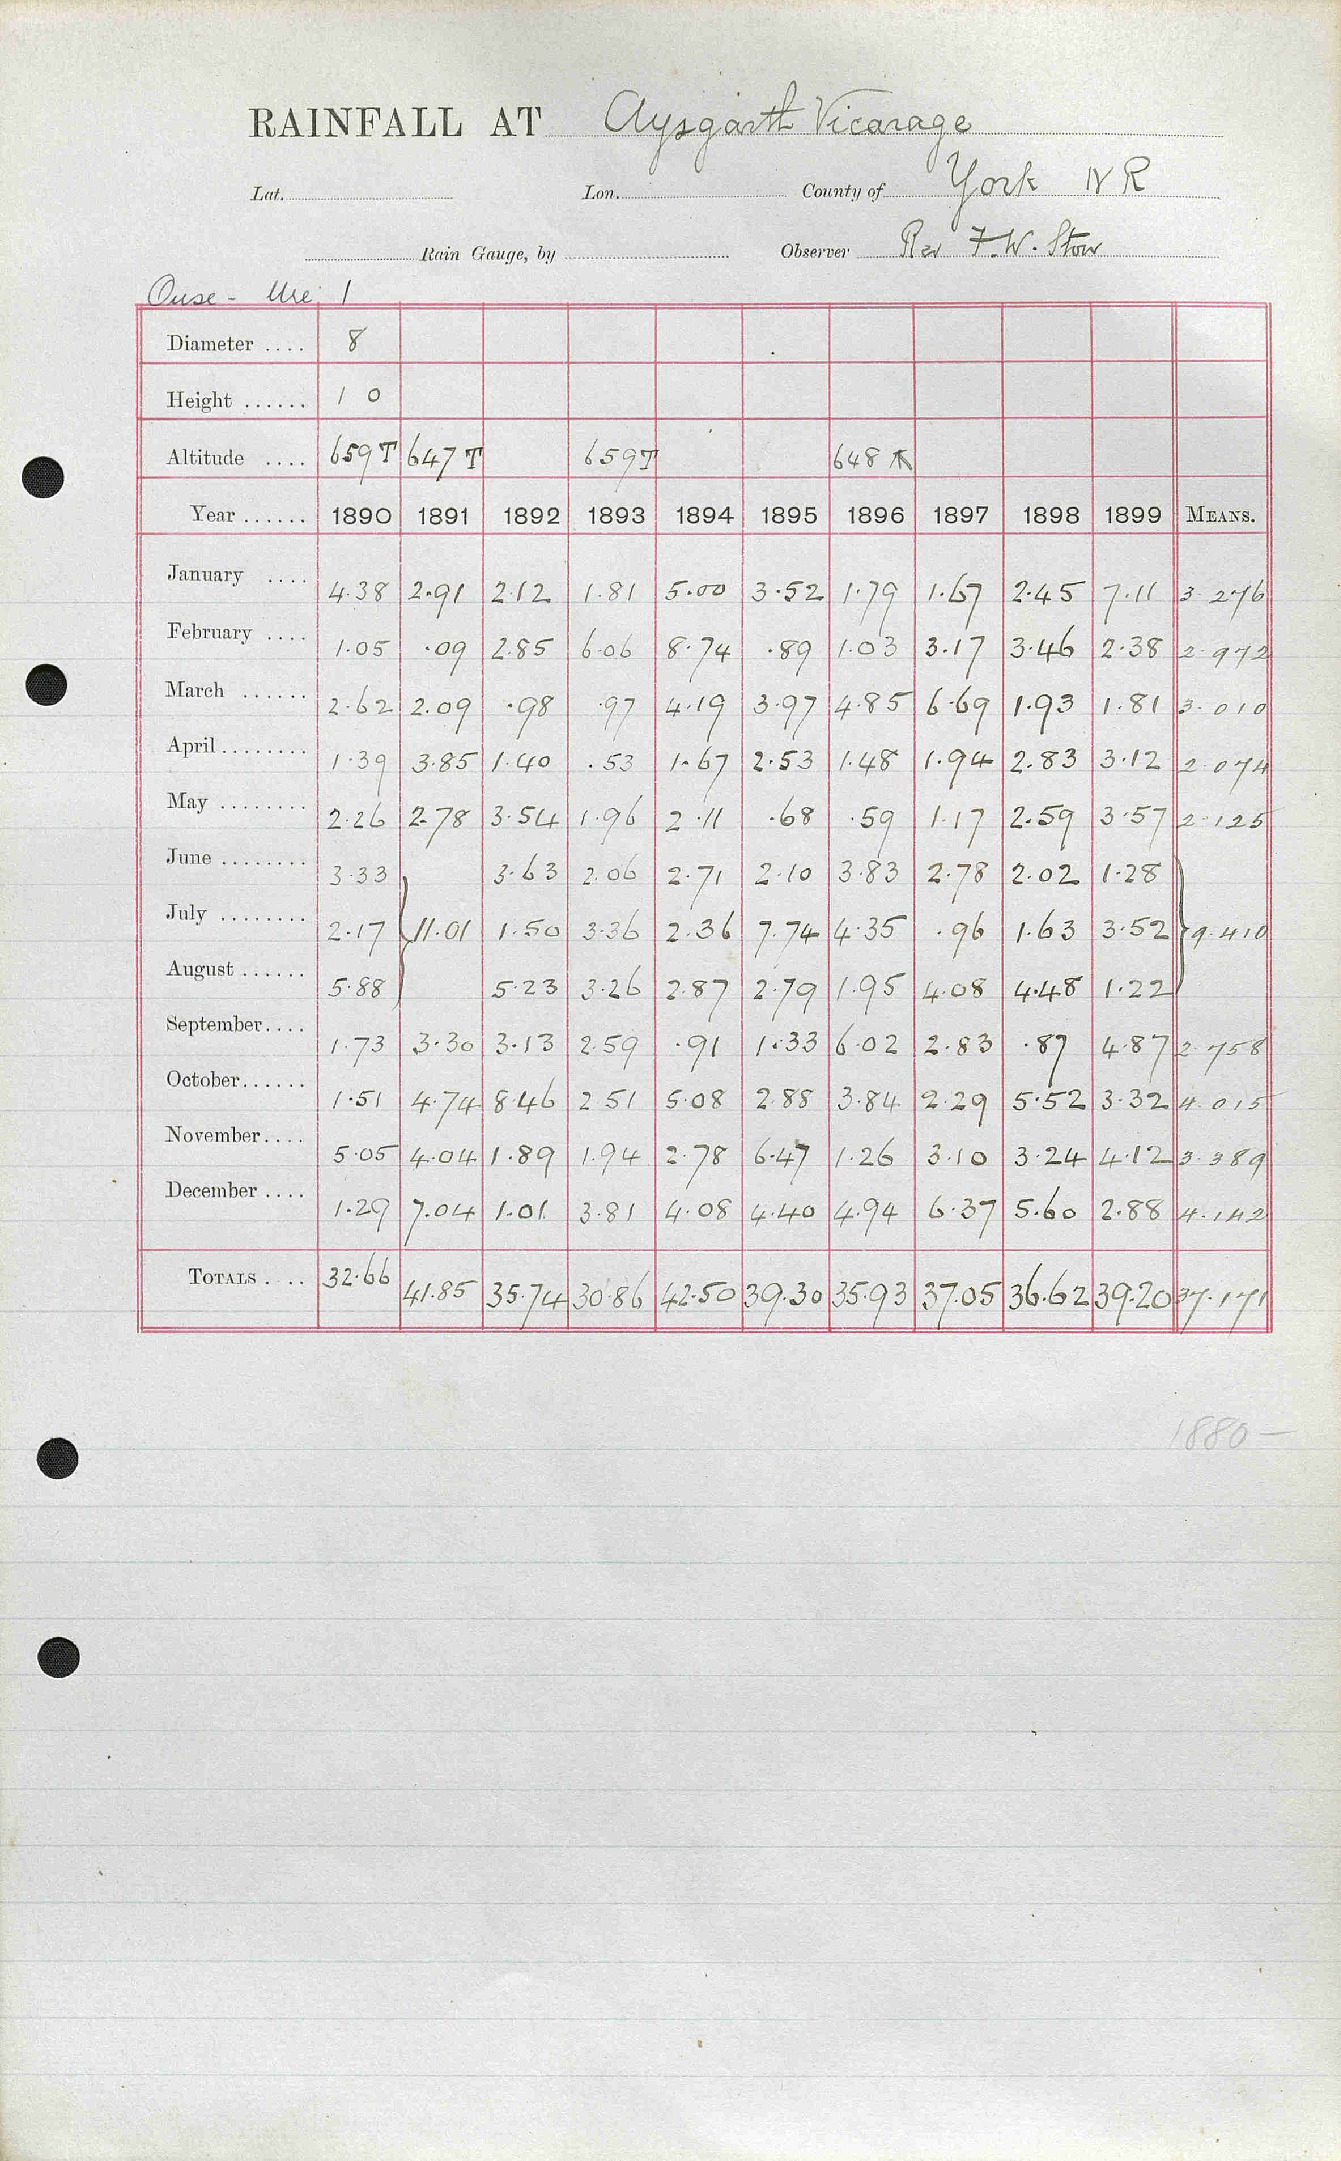 RAINFALL AT Aysgarth Vicarage
Lat. Lon. County of York N R
Rain Gauge, by Observer Rev F.W. Stow
Ouse - Ure 1
Diameter .... 8
Height ...... 1 0
Altitude .... 659T 647T 659T 648
Year ...... 1890 1891 1892 1893 1894 1895 1896 1897 1898 1899 MEANS.
January .... 4.38 2.91 2.12 1.81 5.00 3.52 1.79 1.67 2.45 7.11 3.276
February .... 1.05 .09 2.85 6.06 8.74 .89 1.03 3.17 3.46 2.38 2.972
March ...... 2.62 2.09 .98 .97 4.19 3.97 4.85 6.69 1.93 1.81 3.010
April ........ 1.39 3.85 1.40 .53 1.67 2.53 1.48 1.94 2.83 3.12 2.074
May ........ 2.26 2.78 3.54 1.96 2.11 .68 .59 1.17 2.59 3.57 2.125
June ........ 3.33 3.63 2.06 2.71 2.10 3.83 2.78 2.02 1.28
July ........ 2.17 11.01 1.50 3.36 2.36 7.74 4.35 .96 1.63 3.52 9.410
August ...... 5.88 5.23 3.26 2.87 2.79 1.95 4.08 4.48 1.22
September.... 1.73 3.30 3.13 2.59 .91 1.33 6.02 2.83 .87 4.87 2.758
October...... 1.51 4.74 8.46 2.51 5.08 2.88 3.84 2.29 5.52 3.32 4.015
November.... 5.05 4.04 1.89 1.94 2.78 6.47 1.26 3.10 3.24 4.12 3.389
December .... 1.29 7.04 1.01 3.81 4.08 4.40 4.94 6.37 5.60 2.88 4.142
TOTALS .... 32.66 41.85 35.74 30.86 42.50 39.30 35.93 37.05 36.62 39.20 37.171
1880 —